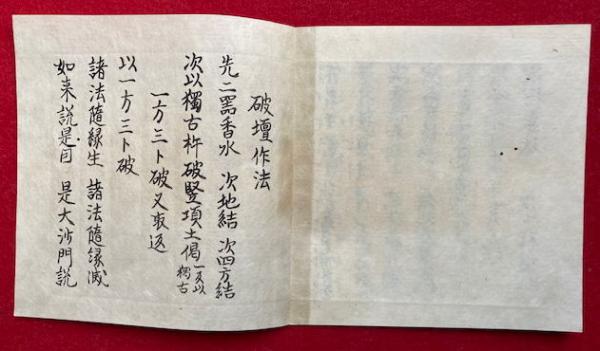 破壇作法
先二器香水 次地結 次四方結
次以獨古杵破竪項土偈 一反以獨古
一方三ト破又取返
以一方三ト破
諸法隨縁生 諸法隨縁滅
如来説是因 是大沙門説